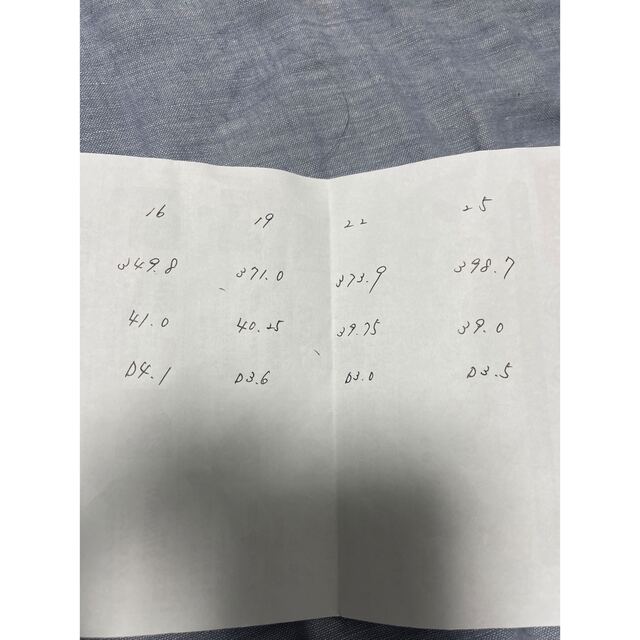 16 19 22 25
349.8 371.0 373.9 398.7
41.0 40.25 39.75 39.0
D4.1 D3.6 D3.0 D3.5